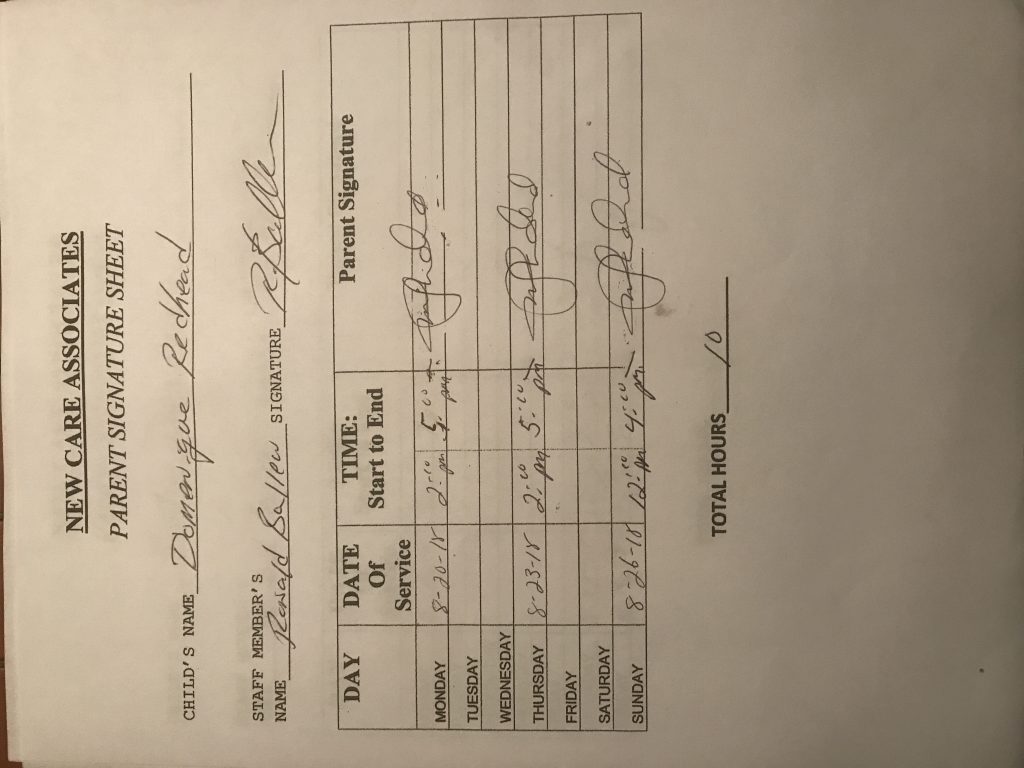 NEW CARE ASSOCIATES
PARENT SIGNATURE SHEET
CHILD'S NAME Domanique Redhead
STAFF MEMBER'S
NAME Ronald Ballew SIGNATURE
DAY DATE Of Service TIME: Start to End Parent Signature
MONDAY 8-20-18 2:00 pm 5:00 pm
TUESDAY
WEDNESDAY
THURSDAY 8-23-18 2:00 pm 5:00 pm
FRIDAY
SATURDAY
SUNDAY 8-26-18 12:00 pm 4:00 pm
TOTAL HOURS 10